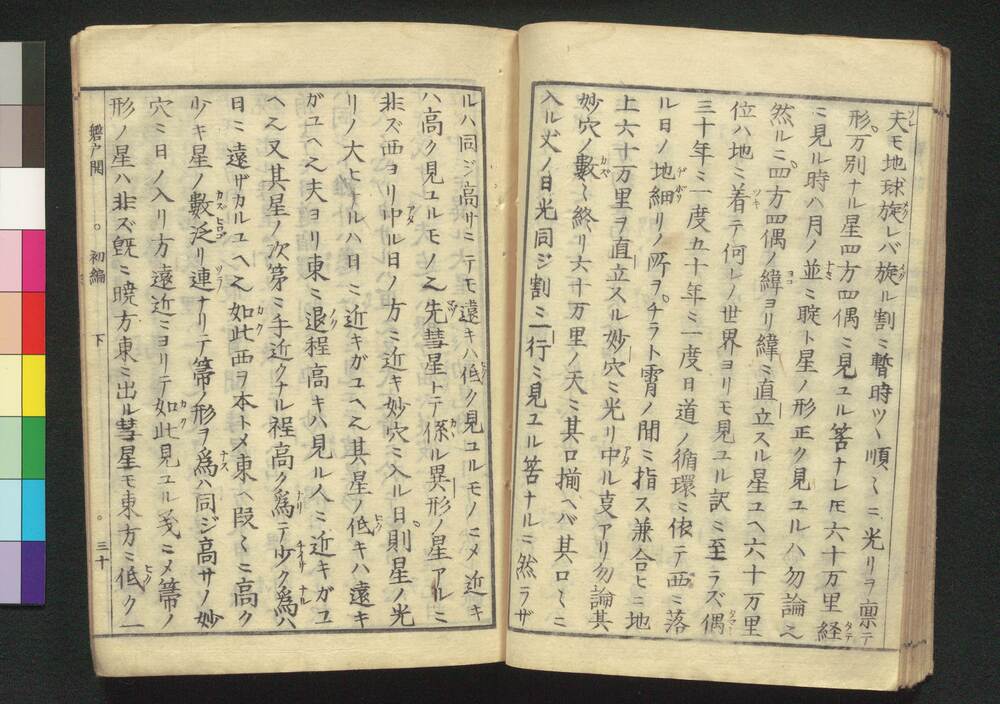 夫モ地球旋レバ旋ル割ニ暫時ツヽ順〻ニ光リヲ禀テ
形万別ナル星四方四偶ニ見ユル筈ナレ𪜈六十万里経
ニ見ル時ハ月ノ並ニ聢ト星ノ形正ク見ユルハ勿論之
然ルニ四方四偶ノ緯ヨリ緯ニ直立スル星ユヘ六十万里
位ハ地ニ着テ何レノ世界ヨリモ見ユル訳ニ至ラズ偶
三十年ニ一度五十年ニ一度日道ノ循環ニ依テ西ニ落
ル日ノ地細リノ所ヲチラト宵ノ間ニ指ス兼合ヒニ地
上六十万里ヲ直立スル妙穴ニ光リ中ル叓アリ勿論其
妙穴ノ數〻終リ六十万里ノ天ニ其口揃ヘバ其口〻ニ
入ル丈ノ日光同ジ割ニ一行ニ見ユル筈ナルニ然ラザ
ルハ同ジ高サニテモ遠キハ低ク見ユルモノニメ近キ
ハ高ク見ユルモノ之先彗星トテ係ル異形ノ星アルニ
非ズ西ヨリ中ル日ノ方ニ近キ妙穴ニ入ル日則星ノ光
リノ大ヒナルハ日ニ近キガユヘ之其星ノ低キハ遠キ
ガユヘ之夫ヨリ東ニ退程高キハ見ル人ニ近キガユ
ヘ之又其星ノ次第ニ手近クナル程高ク為テ少ク為ハ
日ニ遠ザカルユヘ之如此西ヲ本トメ東ヘ段〻ニ高ク
少キ星ノ數泛リ連ナリテ箒ノ形ヲ為ハ同ジ高サノ妙
穴ニ日ノ入リ方遠近ニヨリテ如此見ユル義ニメ箒ノ
形ノ星ハ非ズ既ニ暁方東ニ出ル彗星モ東方ニ低ク一
磐戸開 ○ 初編 下 ○ 三十